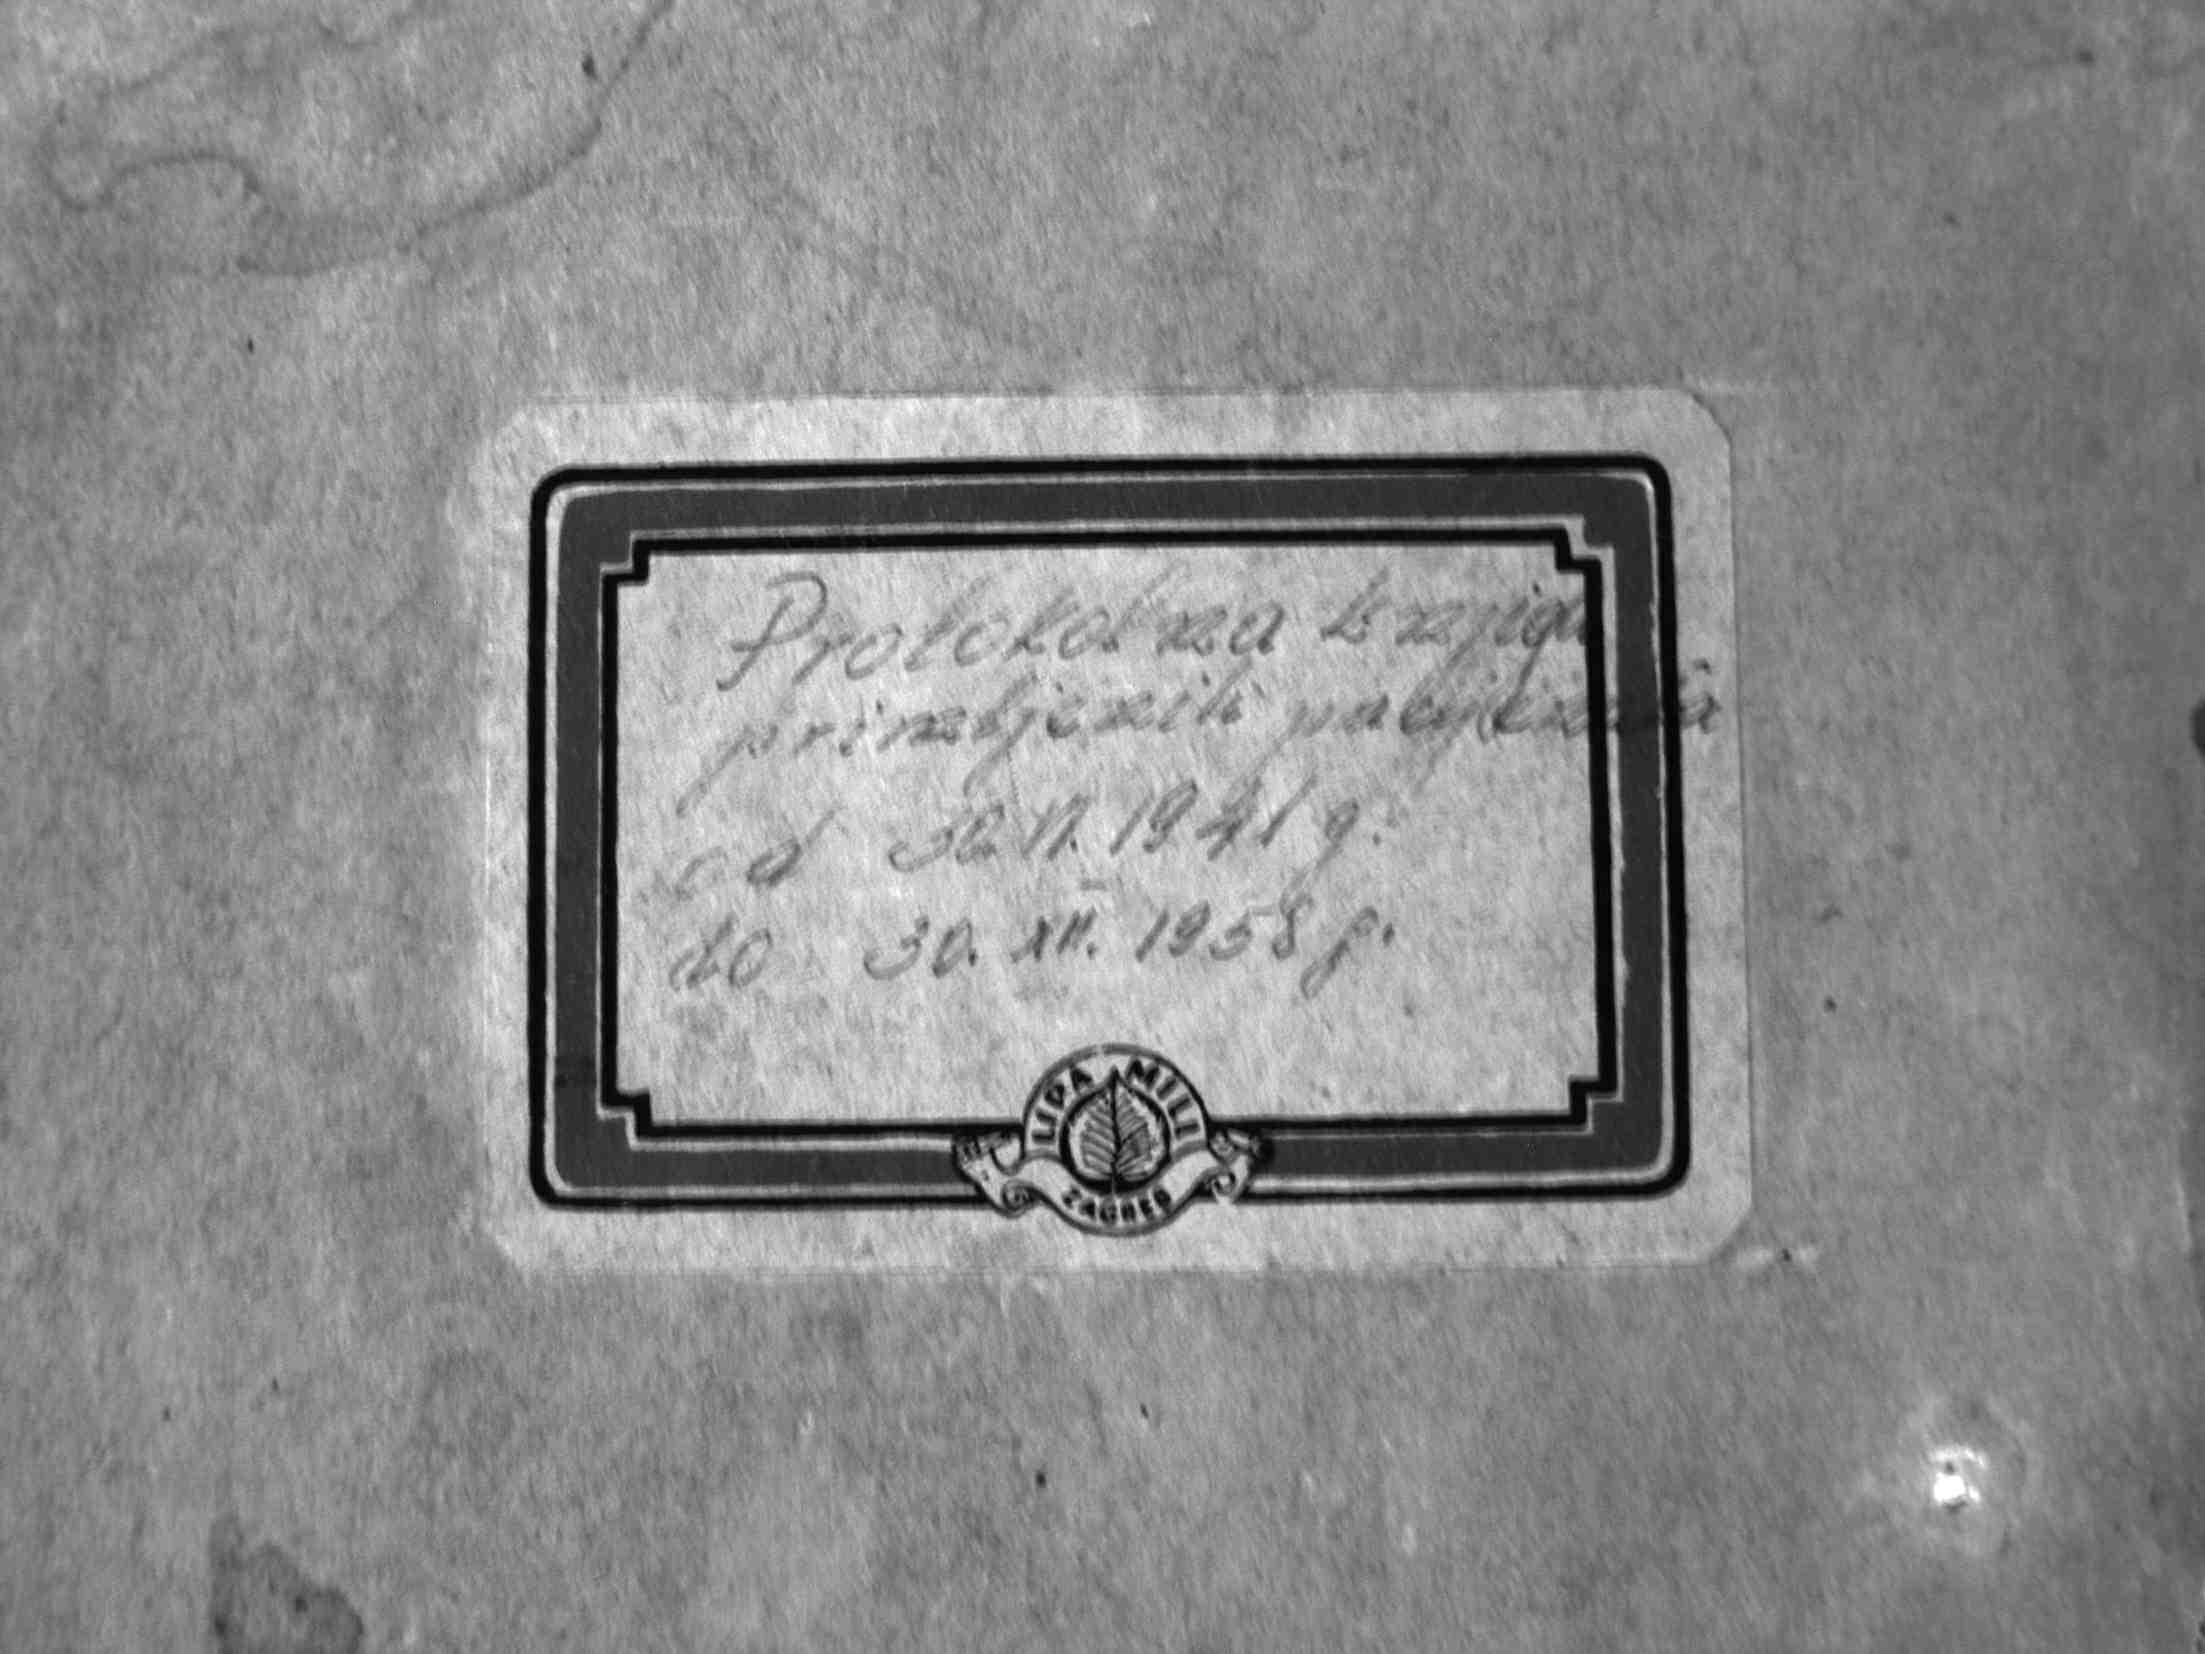 Protokol za knjigu
primljenih
od 30. VI. 1941 g.
do 30. XII. 1958 g.
LIPA MILL
ZAGREB